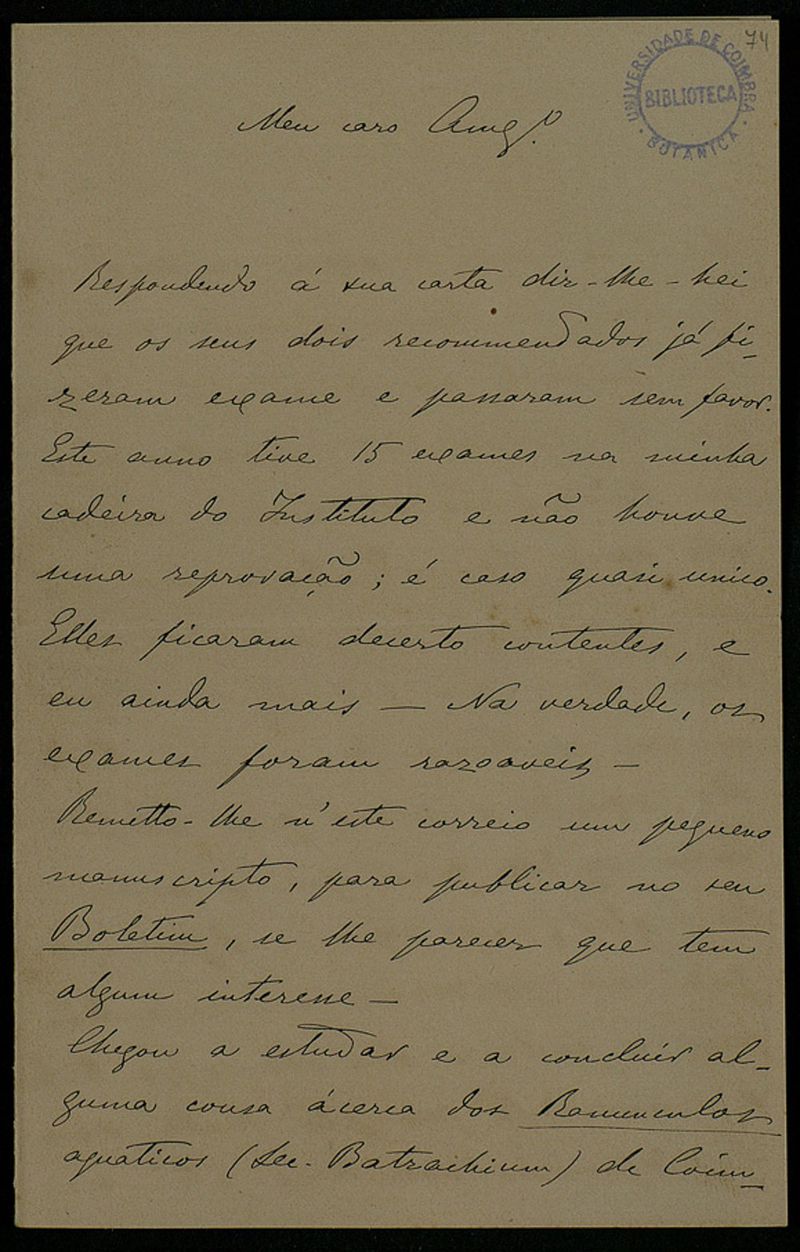 74
UNIVERSIDADE DE COIMBRA
BIBLIOTECA
BOTANICA
Meu caro Amg.º
Respondendo á sua carta dir-lhe-hei
que os seus dois recommendados já fi-
zeram exame e passaram sem favor.
Este anno tive 15 exames na minha
cadeira do Instituto e não houve
uma reprovação; é caso quasi unico.
Elles ficaram decerto contentes, e
eu ainda mais — Na verdade, os
exames foram razoaveis —
Remetto-lhe n'este correio um pequeno
manuscripto, para publicar no seu
Boletim, se lhe parecer que tem
algum interesse —
Chegou a estudar e a concluir al-
guma cousa ácerca dos Ranunculos
aquaticos (Sec. Batrachium) de Coim-